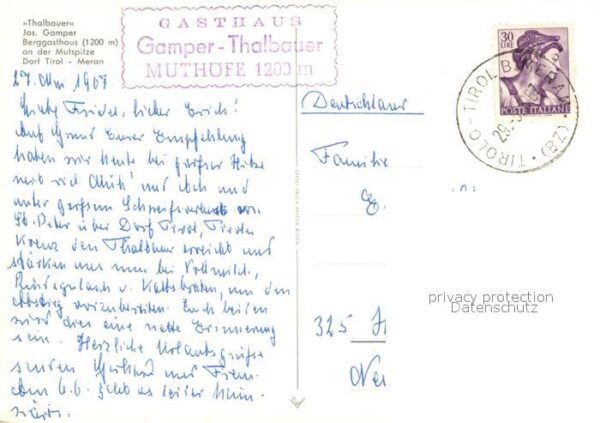 »Thalbauer«
Jos. Gamper
Berggasthaus (1200 m)
an der Mutspitze
Dorf Tirol - Meran
GASTHAUS
Gamper-Thalbauer
MUTHÖFE 1200 m
30
LIRE
POSTE ITALIANE
TIROLO - TIROL
(ZB)
27. Mai 1967
Liebe Friedel, lieber Erich!
Auf Grund Eurer Empfehlung
haben wir heute bei großer Hitze
mit viel Müh' und
unter großem von
St. Peter über Dorf Tirol, Tiroler
Kreuz den Thalbauer erreicht und
stärken uns nun bei Vollmilch,
Rindsgulasch u. Kalbsbraten, um den
Abstieg vorzubereiten. Euch beiden
wird dies eine nette Erinnerung
sein. Herzliche Urlaubsgrüße
senden Gerhard und
Am 6.6. geht es leider heim-
wärts.
Deutschland
Familie
325 H
privacy protection
Datenschutz